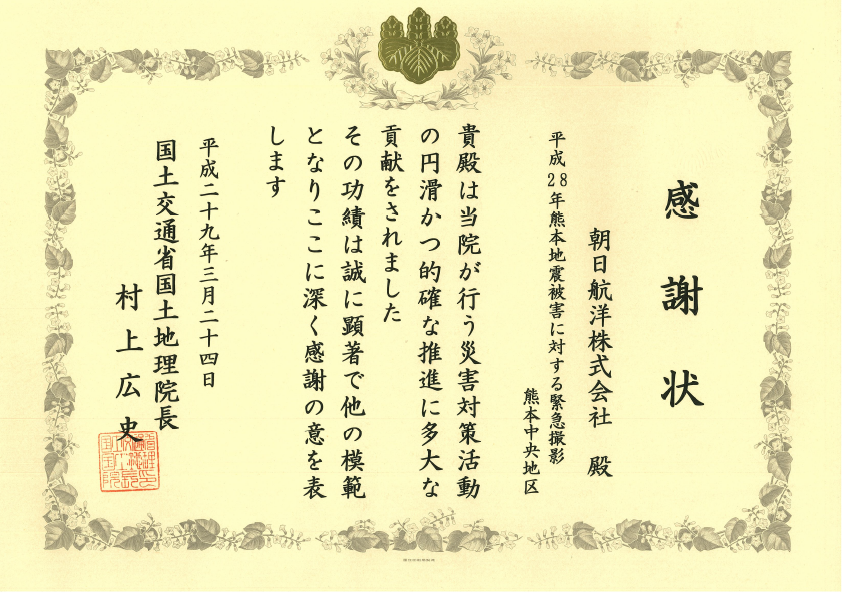 感謝状
朝日航洋株式会社 殿
平成28年熊本地震被害に対する緊急撮影
熊本中央地区
貴殿は当院が行う災害対策活動
の円滑かつ的確な推進に多大な
貢献をされました
その功績は誠に顕著で他の模範
となりここに深く感謝の意を表
します
平成二十九年三月二十四日
国土交通省国土地理院長
村上広史